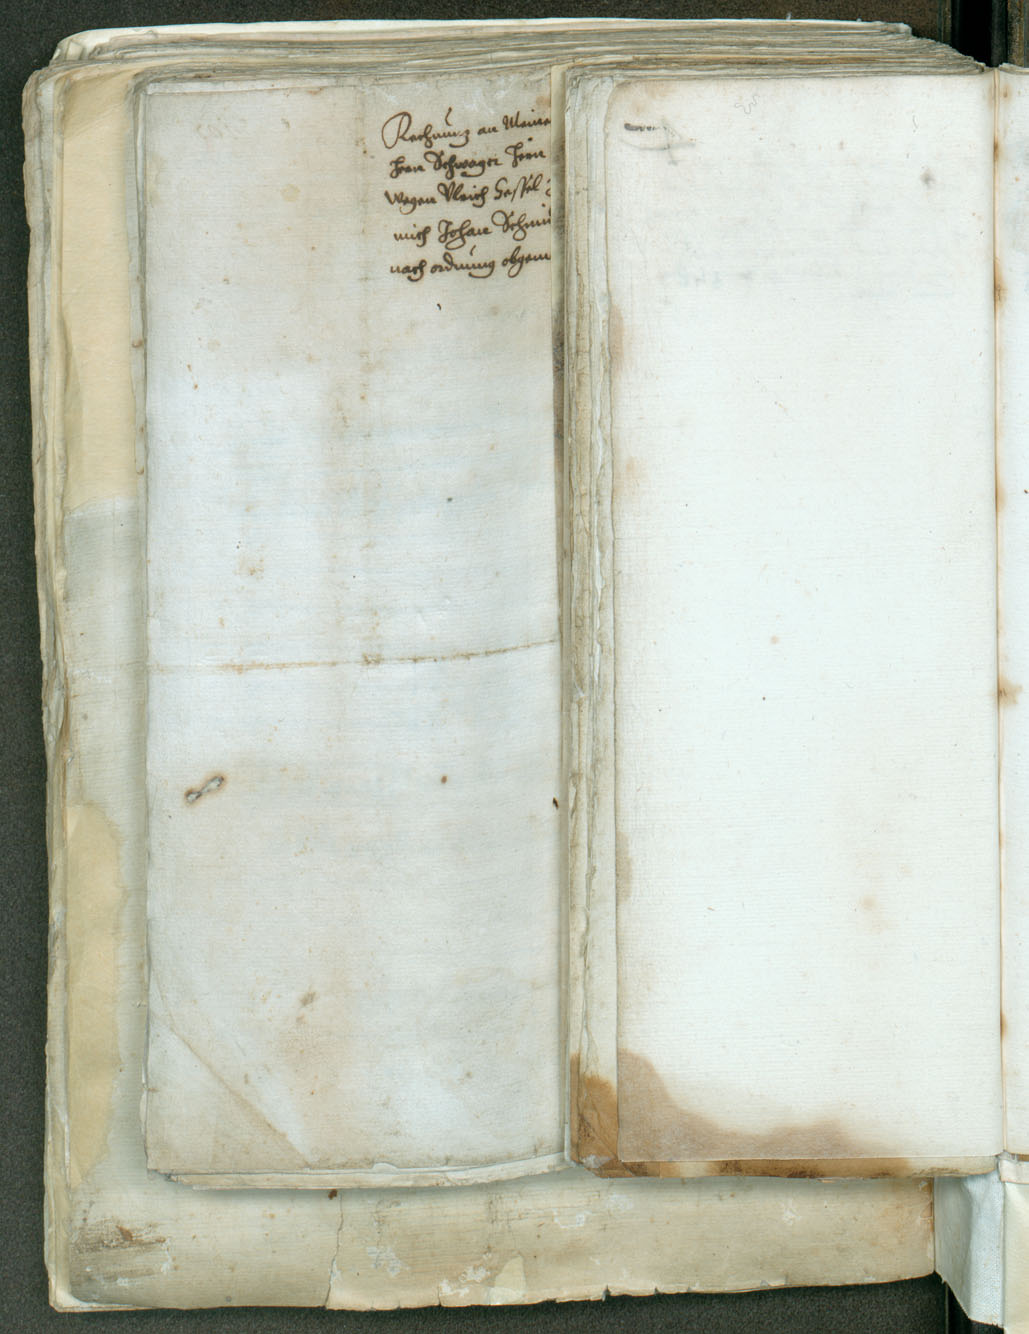 Rechnung an Meine
herrn Schwager Herrn
wegen Vlrich Hessel
mich Johan Schmi
nach ordnung obgem